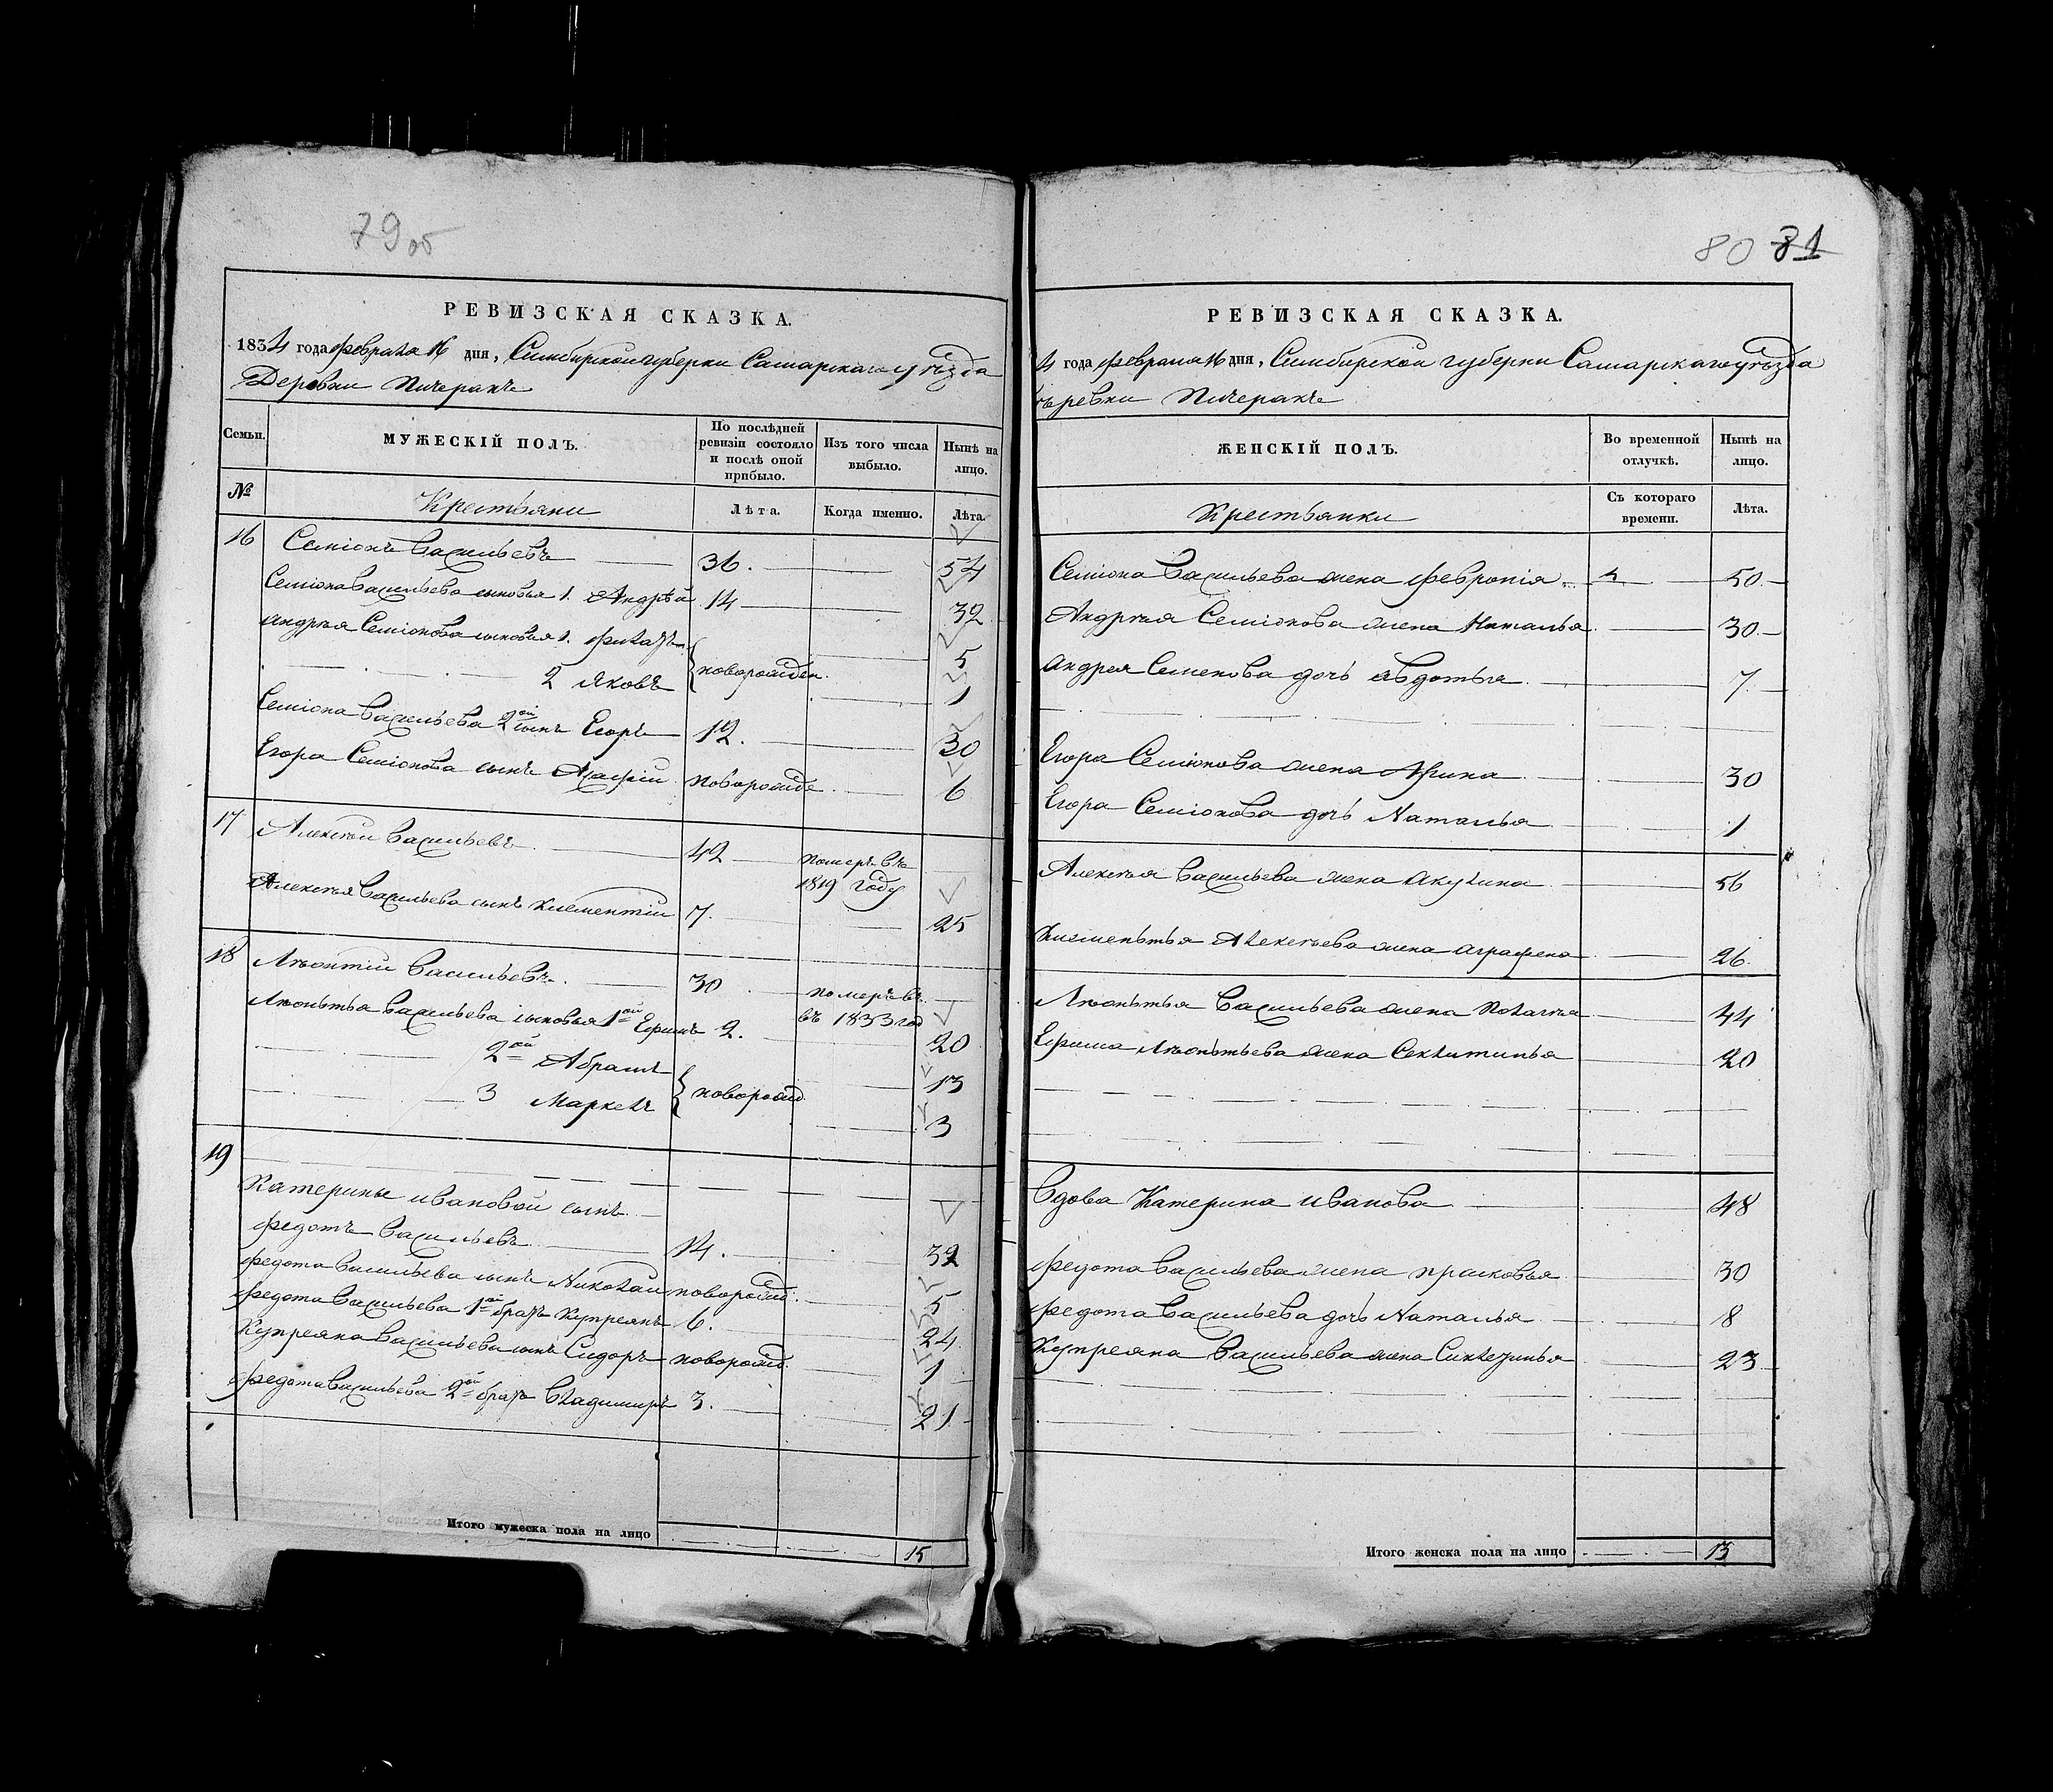 79об
РЕВИЗСКАЯ СКАЗКА.
1834 года февраля 16 дня, Симбирской губерни Самарскаго уѣзда
Деревни Пичеракъ
Семьи.
МУЖЕСКІЙ ПОЛЪ.
По послѣдней ревизіи состояло и послѣ оной прибыло.
Изъ того числа выбыло.
Нынѣ на лицо.
№
Крестьяни
Лѣта.
Когда именно.
Лѣта.
16 Семіонъ Васильевъ 36. 54
Семіона Васильева сыновья 1. Андрѣй 14 32
Андрѣя Семіонова сыновья 1. 5
2 Яковъ новорожден. 1
Семіона Васильева 2ой сынъ Егоръ 12. 30
Егора Семіонова сынъ новорожде 6
17 Алексѣй Васильевъ 42 померъ въ
1819 году
Алексѣя Васильева сынъ Клементій 7. 25
18 Лѣонтій Васильевъ 30 померъ въ
Лѣонтья Васильева сыновья 1ой Ефимъ 2. въ 1833 год 20
2ой Абрамъ 13
3 Маркелъ новорожд. 3
19
Катерины Ивановой сынъ
Федотъ Васильевъ 14. 32
Федота Васильева сынъ Николай новорожд. 5
Федота Васильева 1ой братъ Купреянъ 6. 24
Купреяна Васильева сынъ Сидоръ новорожд. 1
Федота Васильева 2ой братъ Владимиръ 3. 21
Итого мужеска пола на лицо 15
80 81
РЕВИЗСКАЯ СКАЗКА.
4 года февраля 16 дня, Симбирской губерни Самарскаго уѣзда
ѣревни Пичеракъ
ЖЕНСКІЙ ПОЛЪ.
Во временной отлучкѣ.
Нынѣ на лицо.
Крестьянки
Съ котораго времени.
Лѣта.
Семіона Васильева жена Февронія 50
Андрѣя Семіонова жена Наталья 30
Андрея Семенова дочь Авдотья 7
Егора Семіонова жена Арина 30
Егора Семіонова дочь Наталья 1
Алексѣя Васильева жена Акулина 56
Клементья Алексѣева жена Аграфена 26
Лѣонтья Васильева жена Полагѣя 44
Ефима Лѣонтьева жена Секлитинья 20
Вдова Катерина Иванова 48
Федота Васильева жена Прасковья 30
Федота Васильева дочь Наталья 8
Купреяна Васильева жена 23
Итого женска пола на лицо 13